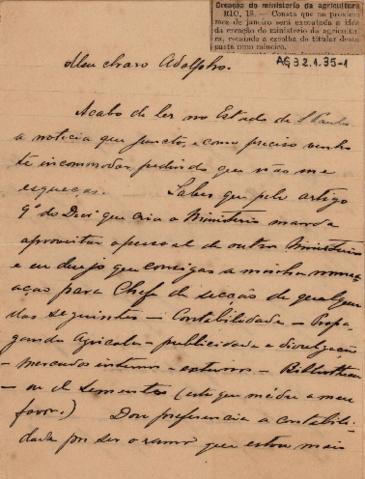 Creação do ministerio da agricultura
RIO, 18. — Consta que no proximo
mez de janeiro será executada a idéa
da creação do ministerio da agricultura,
recaindo a escolha do titular desta
pasta num mineiro.
AG32.1.35-1
Meu charo Adolpho.
Acabo de ler no Estado de S. Paulo
a noticia que juncto, e como preciso venho
te incommodar pedindo que não me
esqueças. Sabes que pelo artigo
9º do Decº que cria o Ministerio manda
aproveitar o pessoal de outro Ministerio
e eu desejo que consigas a minha nome-
ação para Chefe de secção de qualquer
das seguintes — Contabilidade — Propa-
ganda Agricola — publicidade e divulgação
— mercados internos — externos — Bibliotheca
— ou de sementes (este que mêdre a meu
favor.) Dou preferencia a contabili-
dade por ser o ramo que estou mais